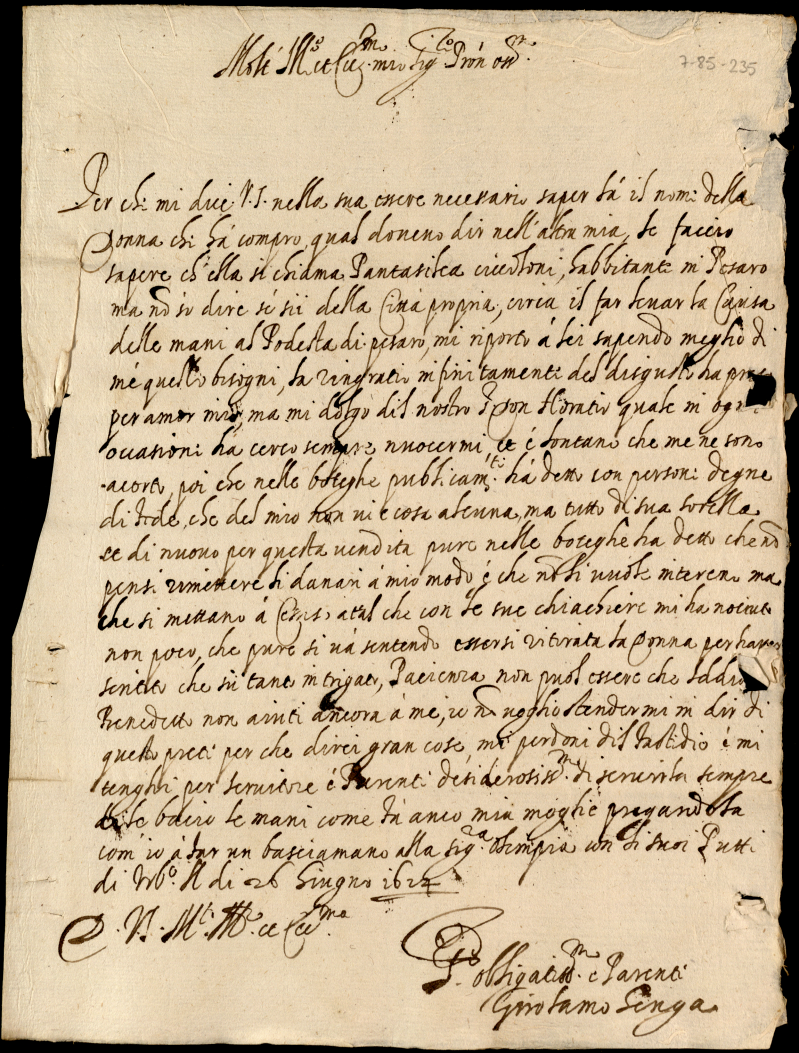 Molt' Mco et Ecc.mo mio Sig.r Pròn oss.mo
7-85-235
Per che mi dice V.S. nella sua essere necessario saper là il nome della
Donna che hà compro, qual doveno dir nell'altra mia, le faccio
sapere ch'ella si chiama Pantasilea habbitante in Pesaro
ma nõ so dire se sii della Città propria, circa il far levar la Causa
delle mani al Podesta di pesaro, mi riporto á lei sapendo meglio di
mé questo bisogni, la ringratio infinitamente del disgusto ha
per amor mio, ma mi dolgo dil nostro Don Horatio quale in ogni
occasione há cerco sempre nuocermi, et é lontano che me ne sono
acorto, poi che nelle boteghe publicam.te há detto con persone degne
di fede, che del mio non vi é cosa alcuna, ma tutto di sua sorella
et di nuovo per questa vendita pure nelle boteghe ha detto che nõ
pensi rimettere li danari á mio modo é che nõ li vuole ma
che si mettano á atal che con le sue chiachiere mi ha nociuto
non poco, che pure si vá sentendo essersi ritirata la Donna per haver
sentito che sii tanto intrigato, Pacienza non puol essere che Iddio
Benedetto non aiuti ancora á me, io nõ voglio stendermi in dir di
questo preti per che direi gran cose, mi perdoni dil fastidio é mi
tenghi per servitore é Parente desiderosiss.mo di servirla sempre
le bacio le mani come fá anco mia moglie pregandola
com'io á far un basciamano alla sig.ra Olimpia con li suoi Putti
di Urb.o li di 26 Giugno 1622
D. V.S. Mto Mco et Ecc.ma
S.re obligatiss.mo e Parente
Girolamo Genga